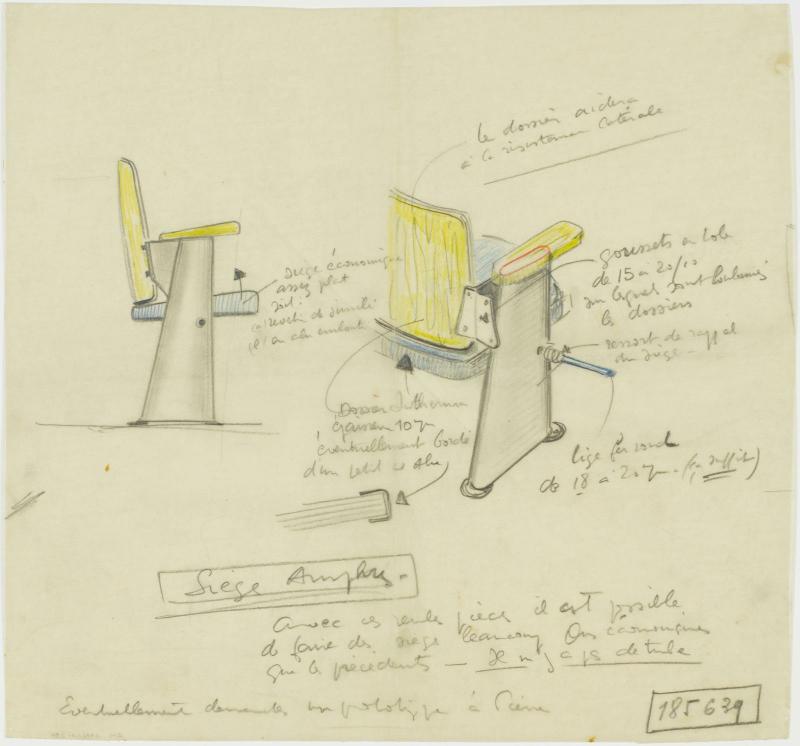 le dossier aidera
à la résistance latérale
siège économique
assez plat
soit:
revêtu de simili
goussets en tole
de 15 à 20/10
sur lequel sont boulonnés
les dossiers
ressort de rappel
du siège -
Dossier
épaisseur 10
éventuellement bordé
d'un petit
tige fer rond
de 18 à 20 (suffit)
Siège Amphis -
Avec ces seules pièces il est possible
de faire des siège beaucoup plus économiques
que les précédents - il n'y a pas de tube
Eventuellement demander un prototype à Pierre
185639